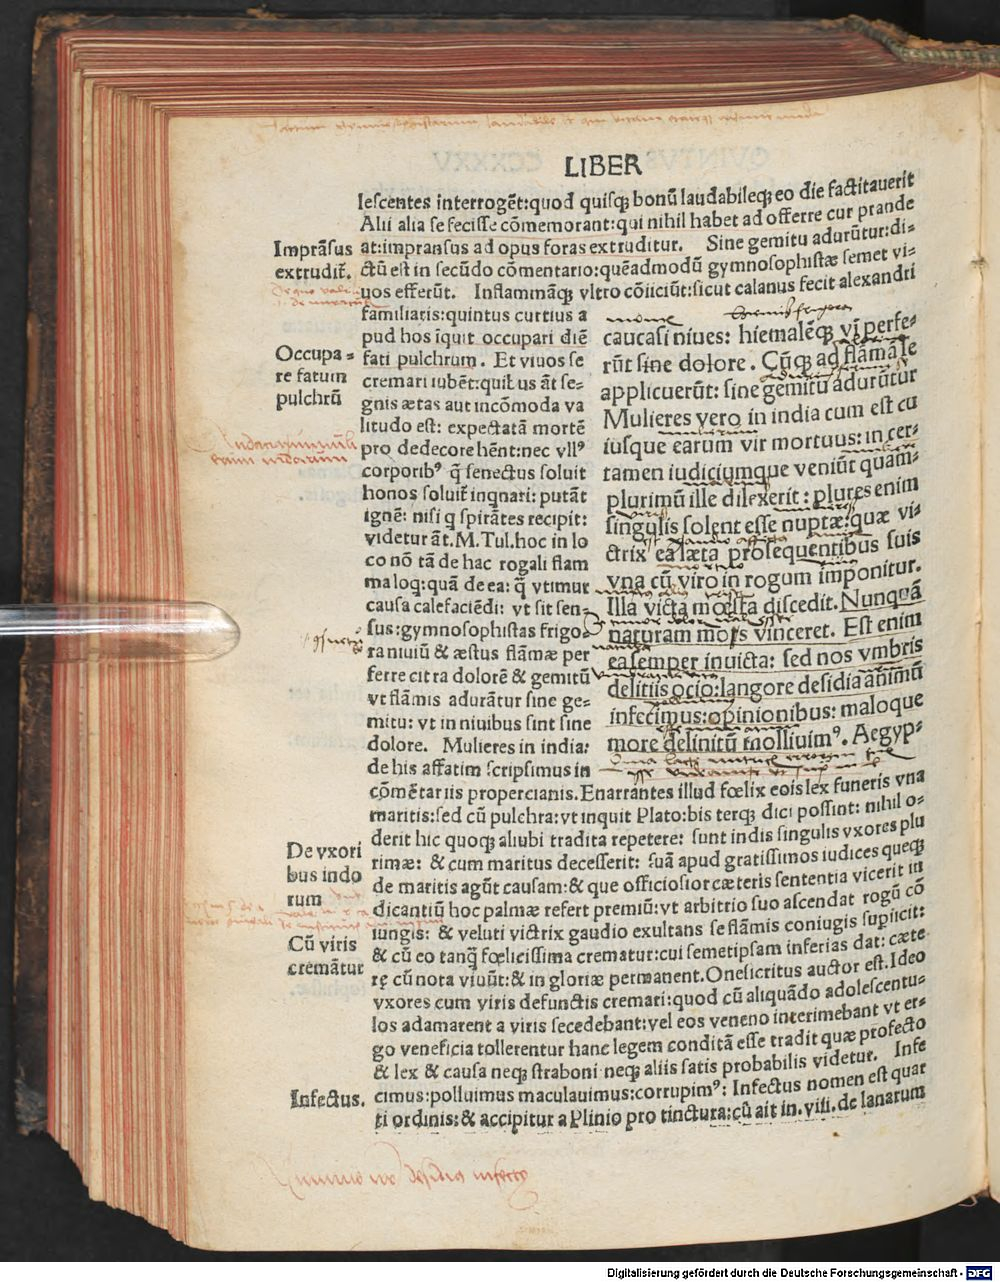 LIBER
lescentes interrogēt:quod quisqꝫ bonū laudabileqꝫ eo die factitauerit
Alii alia se fecisse cōmemorant:qui nihil habet ad offerre cur prande
Imprāsus
extrudit̄.
at:impransus ad opus foras extruditur. Sine gemitu adurūtur:di⸗
ctū est in secūdo cōmentario:quēadmodū gymnosophistæ semet vi⸗
uos efferūt. Inflammāqꝫ vltro cōiiciūt:sicut calanus fecit alexandri
familiaris:quintus curtius a
pud hos īquit occupari diē
Occupa⸗
re fatum
pulchrū
fati pulchrum. Et viuos se
cremari iubēt:quibus āt se⸗
gnis ætas aut incōmoda va
litudo est: expectatā mortē
pro dedecore hēnt:nec vllꝰ
corporibꝰ q̄ senectus soluit
honos soluit̄ inqnari: putāt
ignē: nisi q spirātes recipit:
videtur āt.M.Tul.hoc in lo
co nō tā de hac rogali flam
ma loq:quā de ea: q̄ vtimur
causa calefaciēdi: vt sit sen⸗
sus:gymnosophistas frigo⸗
ra niuiū & æstus flāmæ per
ferre citra dolorē & gemitū
vt flāmis adurātur sine ge⸗
mitu: vt in niuibus sint sine
dolore. Mulieres in india:
de his affatim scripsimus in
caucasi niues: hiemalēqꝫ vī perfe⸗
rūt sine dolore. Cūqꝫ ad flāmā se
applicuerūt: sine gemitu adurūtur
Mulieres vero in india cum est cu
iusque earum vir mortuus: in cer⸗
tamen iudiciumque veniūt quam⸗
plurimū ille dilexerit: plures enim
singulis solent esse nuptæ:quæ vi⸗
ctrix ea læta prosequentibus suis
vna cū viro in rogum imponitur.
Illa victa mœsta discedit. Nunquā
naturam mos vinceret. Est enim
ea semper inuicta: sed nos vmbris
delitiis ocio:langore desidia animū
infecimus:opinionibus: maloque
more delinitū molliuimꝰ. Aegyp⸗
cōmētariis propercianis.Enarrantes illud fœlix eois lex funeris vna
maritis:sed cū pulchra:vt inquit Plato:bis terqꝫ dici possint: nihil o⸗
derit hic quoqꝫ aliubi tradita repetere: sunt indis singulis vxores plu
De vxori
bus indo
rum
rimæ: & cum maritus decesserit: suā apud gratissimos iudices queqꝫ
de maritis agūt causam:& que officiosior cæteris sententia vicerit in
dicantiū hoc palmæ refert premiū:vt arbitrio suo ascendat rogū cō
iungis: & veluti victrix gaudio exultans se flāmis coniugis supiicit:
Cū viris
cremātur
& cū eo tanqꝫ fœlicissima crematur:cui semetipsam inferias dat: cæte
rę cū nota viuūt:& in gloriæ permanent.Onesicritus auctor est.Ideo
vxores cum viris defunctis cremari:quod cū aliquādo adolescentu⸗
los adamarent a viris secedebant:vel eos veneno interimebant vt er⸗
go veneficia tollerentur hanc legem conditā esse tradit quæ profecto
& lex & causa neqꝫ straboni neqꝫ aliis satis probabilis videtur. Infe
Infectus.
cimus:polluimus maculauimus:corrupimꝰ: Infectus nomen est quar
ti ordinis:& accipitur a Plinio pro tinctura:cū ait in.viii.de lanarum
Digitalisierung gefördert durch die Deutsche Forschungsgemeinschaft - DFG